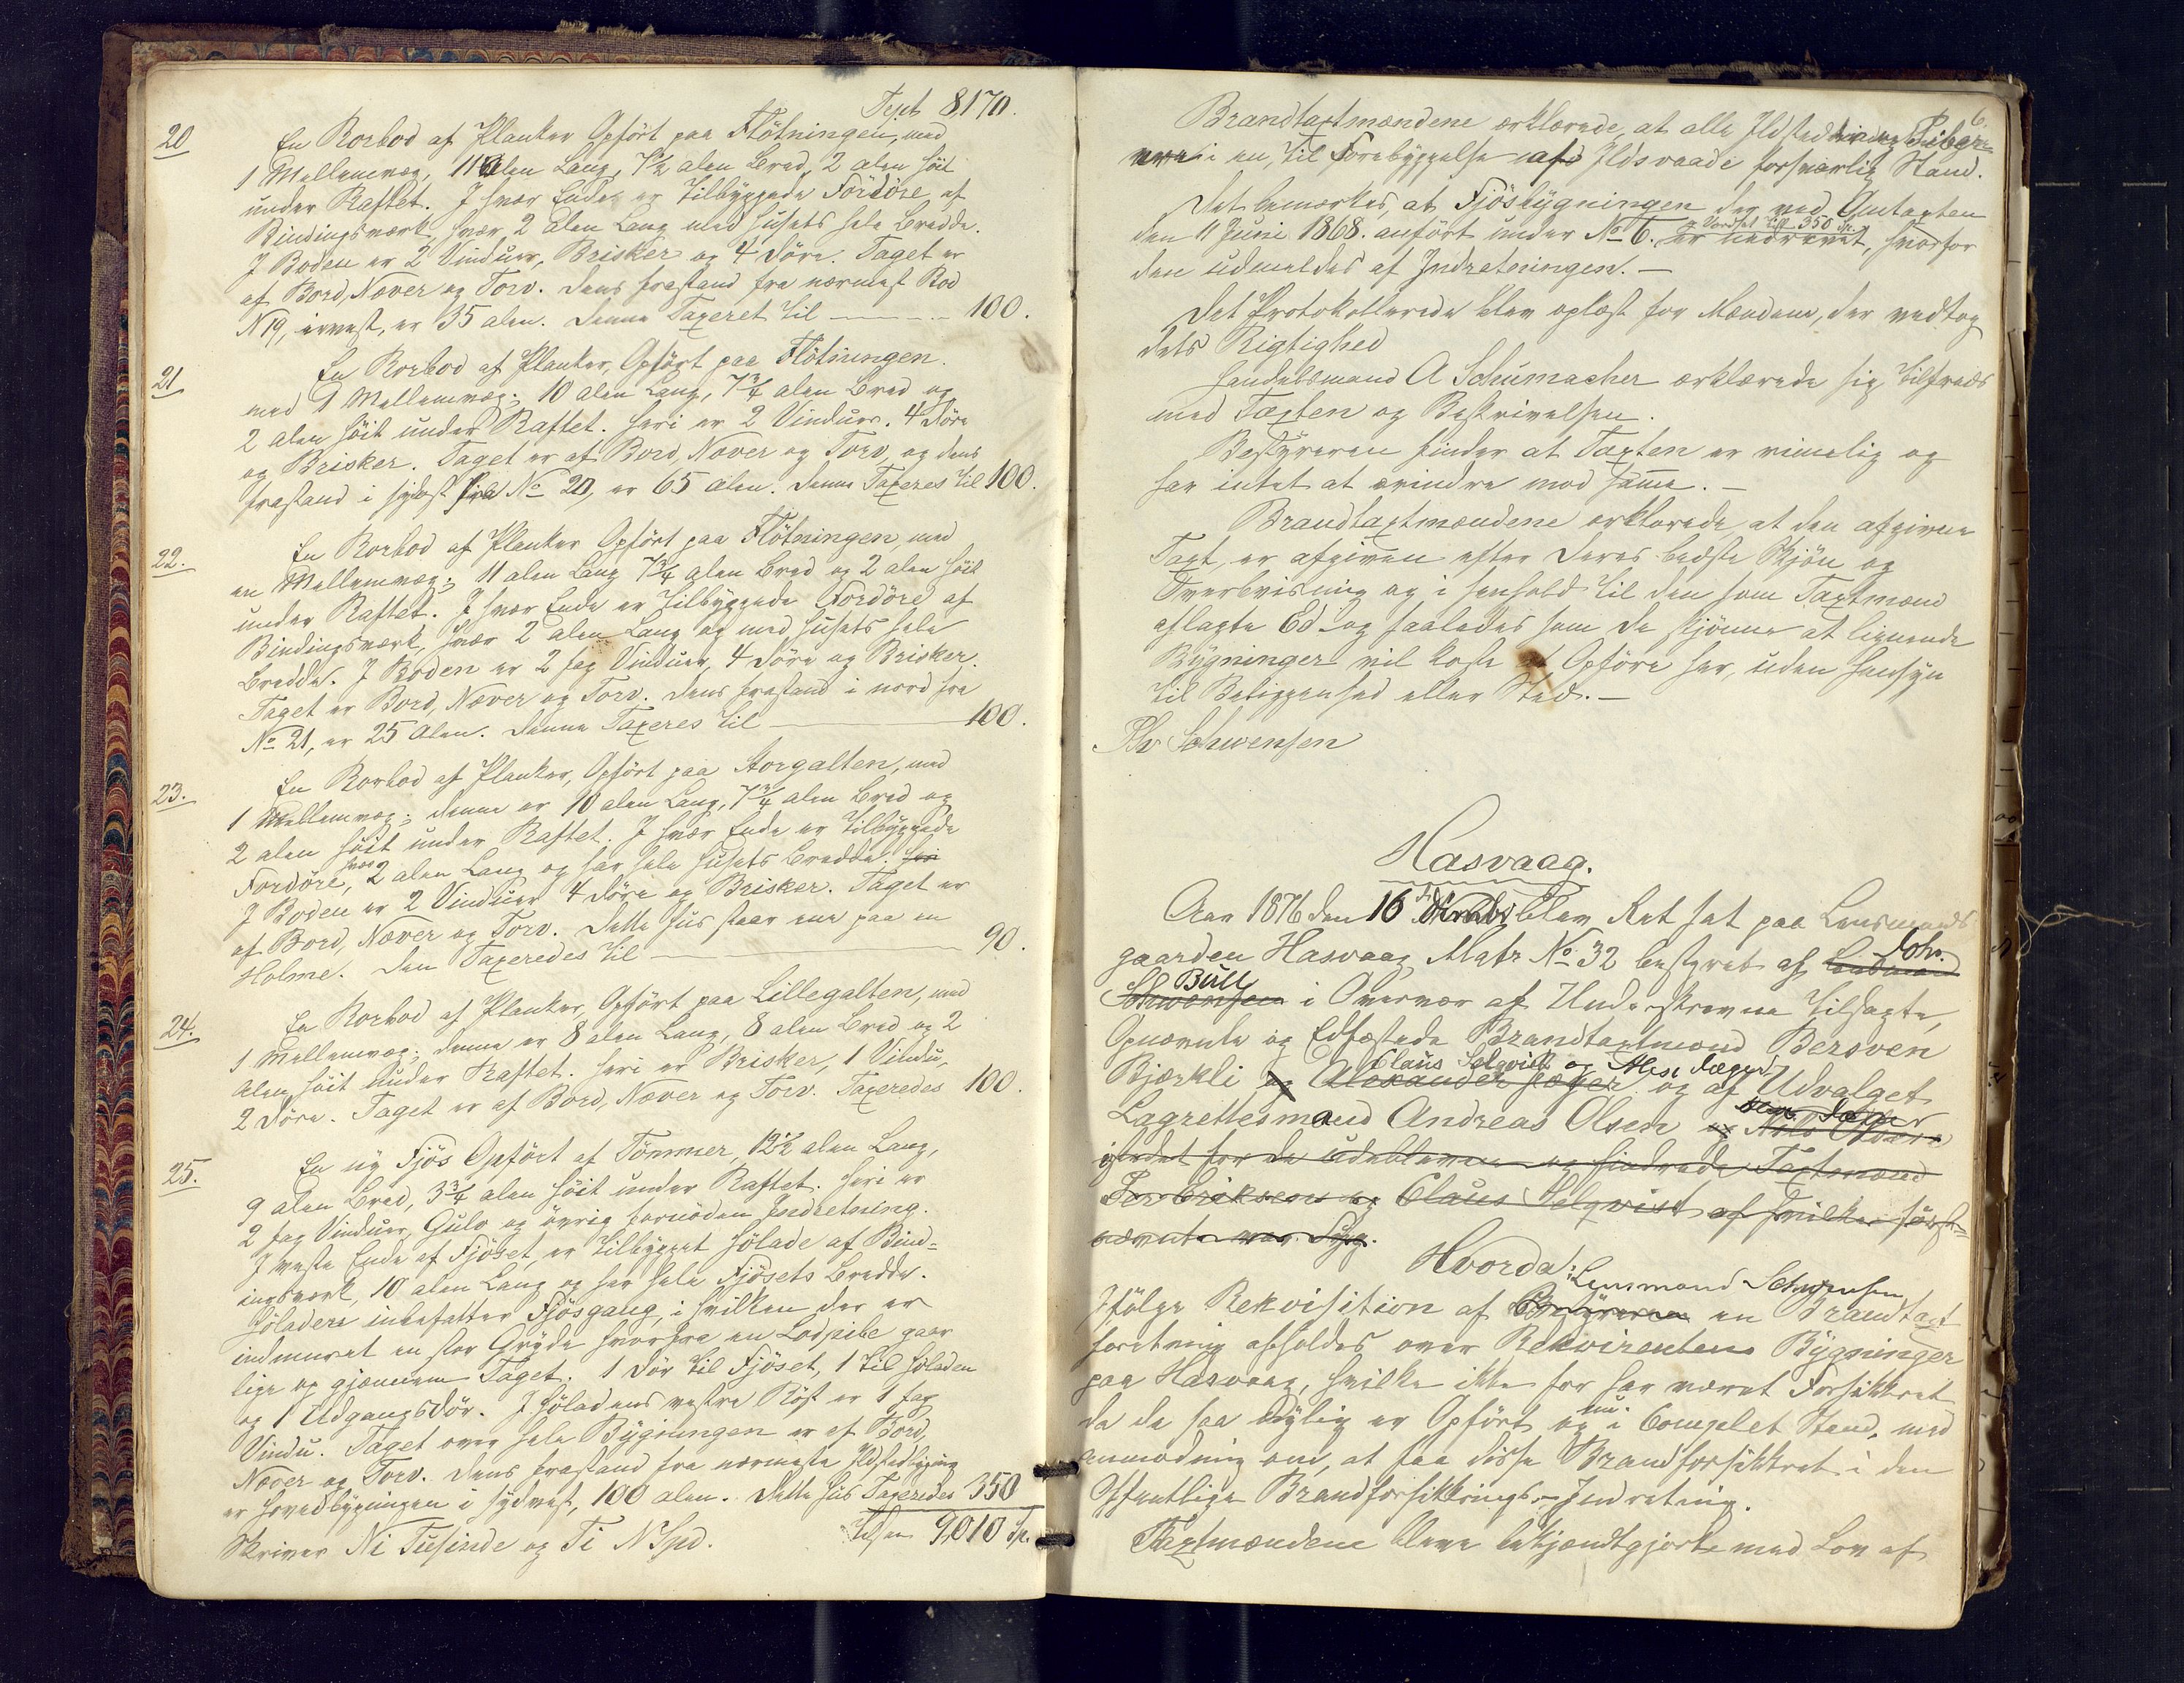 Trspt 8170.
20 En Rorbod af Planker Opfört paa Flötningen, med
1 Mellemvæg, 11 Alen Lang, 7½ alen Bred, 2 alen höit
under Raftet. I hver Ende er Tilbyggede Fordöre af
Bindingsværk, hver 2 Alen Lang med husets hele Bredde.
I Boden er 2 Vinduer, Brisker og 4 Döre. Taget er
af Bord, Næver og Torv. Dens frastand fra nærmest Bod
N 19, i vest, er 35 alen. Denne Taxeret til 100.
21 En Rorbod af Planker, Opfört paa Flötningen.
med 1 Mellemvæg; 10 alen Lang, 7¾ alen Bred og
2 alen höit under Raftet. Heri er 2 Vinduer. 4 Döre
og Brisker. Taget er af Bord, Næver og Torv, og dens
frastand i sydost fra No 20, er 65 alen. Denne Taxeres til 100.
22. En Rorbod af Planker Opfört paa Flötningen, med
en Mellemvæg; 11 alen Lang 7¾ alen Bred og 2 alen höit
under Raftet. I hver Ende er Tilbyggede Fordöre af
Bindingsværk, hver 2 alen Lang og med husets hele
Bredde. I Boden er 2 fag Vinduer, 4 Döre og Brisker.
Taget er Bord, Næver og Torv. Dens frastand i nord fra
No 21, er 25 Alen. Denne Taxeres til 100.
23. En Rorbod af Planker, Opfört paa Storgalten, med
1 Mellemvæg; denne er 10 alen Lang, 7¾ alen Bred og
2 alen höit under Raftet. I hver Ende er Tilbyggede
Fordöre, hver 2 alen Lang og har hele husets Bredde. Heri
I Boden er 2 Vinduer 4 Döre og Brisker. Taget er
af Bord, Næver og Torv. Dette hus staar ene paa en
Holme. Den Taxeredes til 90.
24. En Rorbod af Planker, Opfört paa Lillegalten, med
1 Mellemvæg; denne er 8 alen Lang, 8 alen Bred og 2
Alen höit under Raftet. Heri er Brisker, 1 Vindu,
2 Döre. Taget er af Bord, Næver og Torv. Taxeredes 100.
25. En ny Fjös Opfört af Tömmer, 12½ alen Lang,
9 alen Bred, 3¾ alen höit under Raftet. Heri er
2 fag Vinduer, Gulv og övrig fornöden Indretning.
I vestre Ende af Fjöset, er tilbygget Hölade af Bind-
ingsværk, 10 alen Lang og har hele Fjösets Bredde.
Höladen indbefatter Fjösgang, i hvilken der er
indmuret en stor Gryde hvorfra en Lodpibe gaar
lige op gjennem Taget. 1 Dör til Fjöset, 1 til Höladen
og 1 Udgangsdör. I Höladens vestre Röst er 1 fag
Vindu. Taget over hele Bygningen er af Bord,
Næver og Torv. Dens frastand fra nærmeste Ildstedbygning
er Hovedbygningen i sydvest, 100 alen. Dette hus Taxeredes 350
Tilsam 9010 Sp.
Skriver Ni Tusinde og Ti N Spd.
6.
Brandtaxtmændene erklærede, at alle Ildstedder og Piber
vare i en, til Forebyggelse af Ildsvaade forsvarlig Stand.
Det bemærkes, at Fjösbygningen der ved Omtaxten
og Vardsat til 350 Sp.
den 11 Juni 1868. anfört under No 6. er nedrevet, hvorfor
den udmeldes af Indretningen.—
Det Protokollerede blev oplæst for Mændene, der vedtog
dets Rigtighed
Handelsmand A Schumacher erklærede sig tilfreds
med Taxten og Beskrivelsen.
Bestyreren finder at Taxten er rimelig og
har intet at erindre mod samme.—
Brandtaxtmændene erklærede at den afgivne
Taxt, er afgiven efter Deres bedste Skjön og
Overbevisning og i henhold til den som Taxtmænd
aflagte Ed og saaledes som de skjönne at lignende
Bygninger vil koste at Opföre her, uden Hensyn
til Beliggenhed eller Sted.—
Schwensen
Hasvaag.
Aar 1876 den 16 blev Ret sat paa Lensmands
gaarden Hasvaag Matr No 32 bestyret af Lensmand Joh.
Bull
Schwensen i Overvær af Underskrevne tilsagte,
Opnævnte og Edfæstede Brandtaxtmænd Bersven
Claus Selqvist og Alex Jæger
Bjærkli og Alexander Jæger og af Udvalget
Lagrettesmænd Andreas Olsen og Nils
istedet for de udeblevne og hindrede Taxtmænd
Per Eriksen og Claus Selqvist af hvilke först-
nævnte var Syg.
Hvorda:
Lensmand Schwensen
Ifölge Rekvisition af Bestyreren en Brandtaxt
forretning afholdes over Rekvirentens Bygninger
paa Hasvaag, hvilke ikke för har været Forsikkret
da de saa nylig er Opfört og nu i Complet Stand, med
anmodning om, at faa disse Brandforsikkret i den
Offentlige Brandforsikkrings-Indretning.
Taxtmændene bleve bekjendtgjorte med Lov af